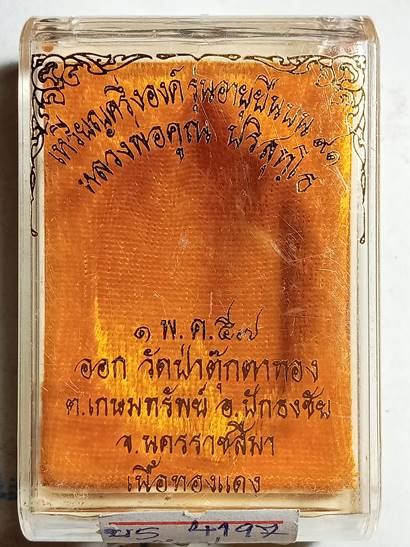 เหรียญครึ่งองค์ รุ่นอายุยืนพูน ๙๑
หลวงพ่อคูณ ปริสุทฺโธ
๑ พ.ค.๕๗
ออก วัดป่าตุ๊กตาทอง
ต.เกษมทรัพย์ อ.ปักธงชัย
จ.นครราชสีมา
เนื้อทองแดง
4197